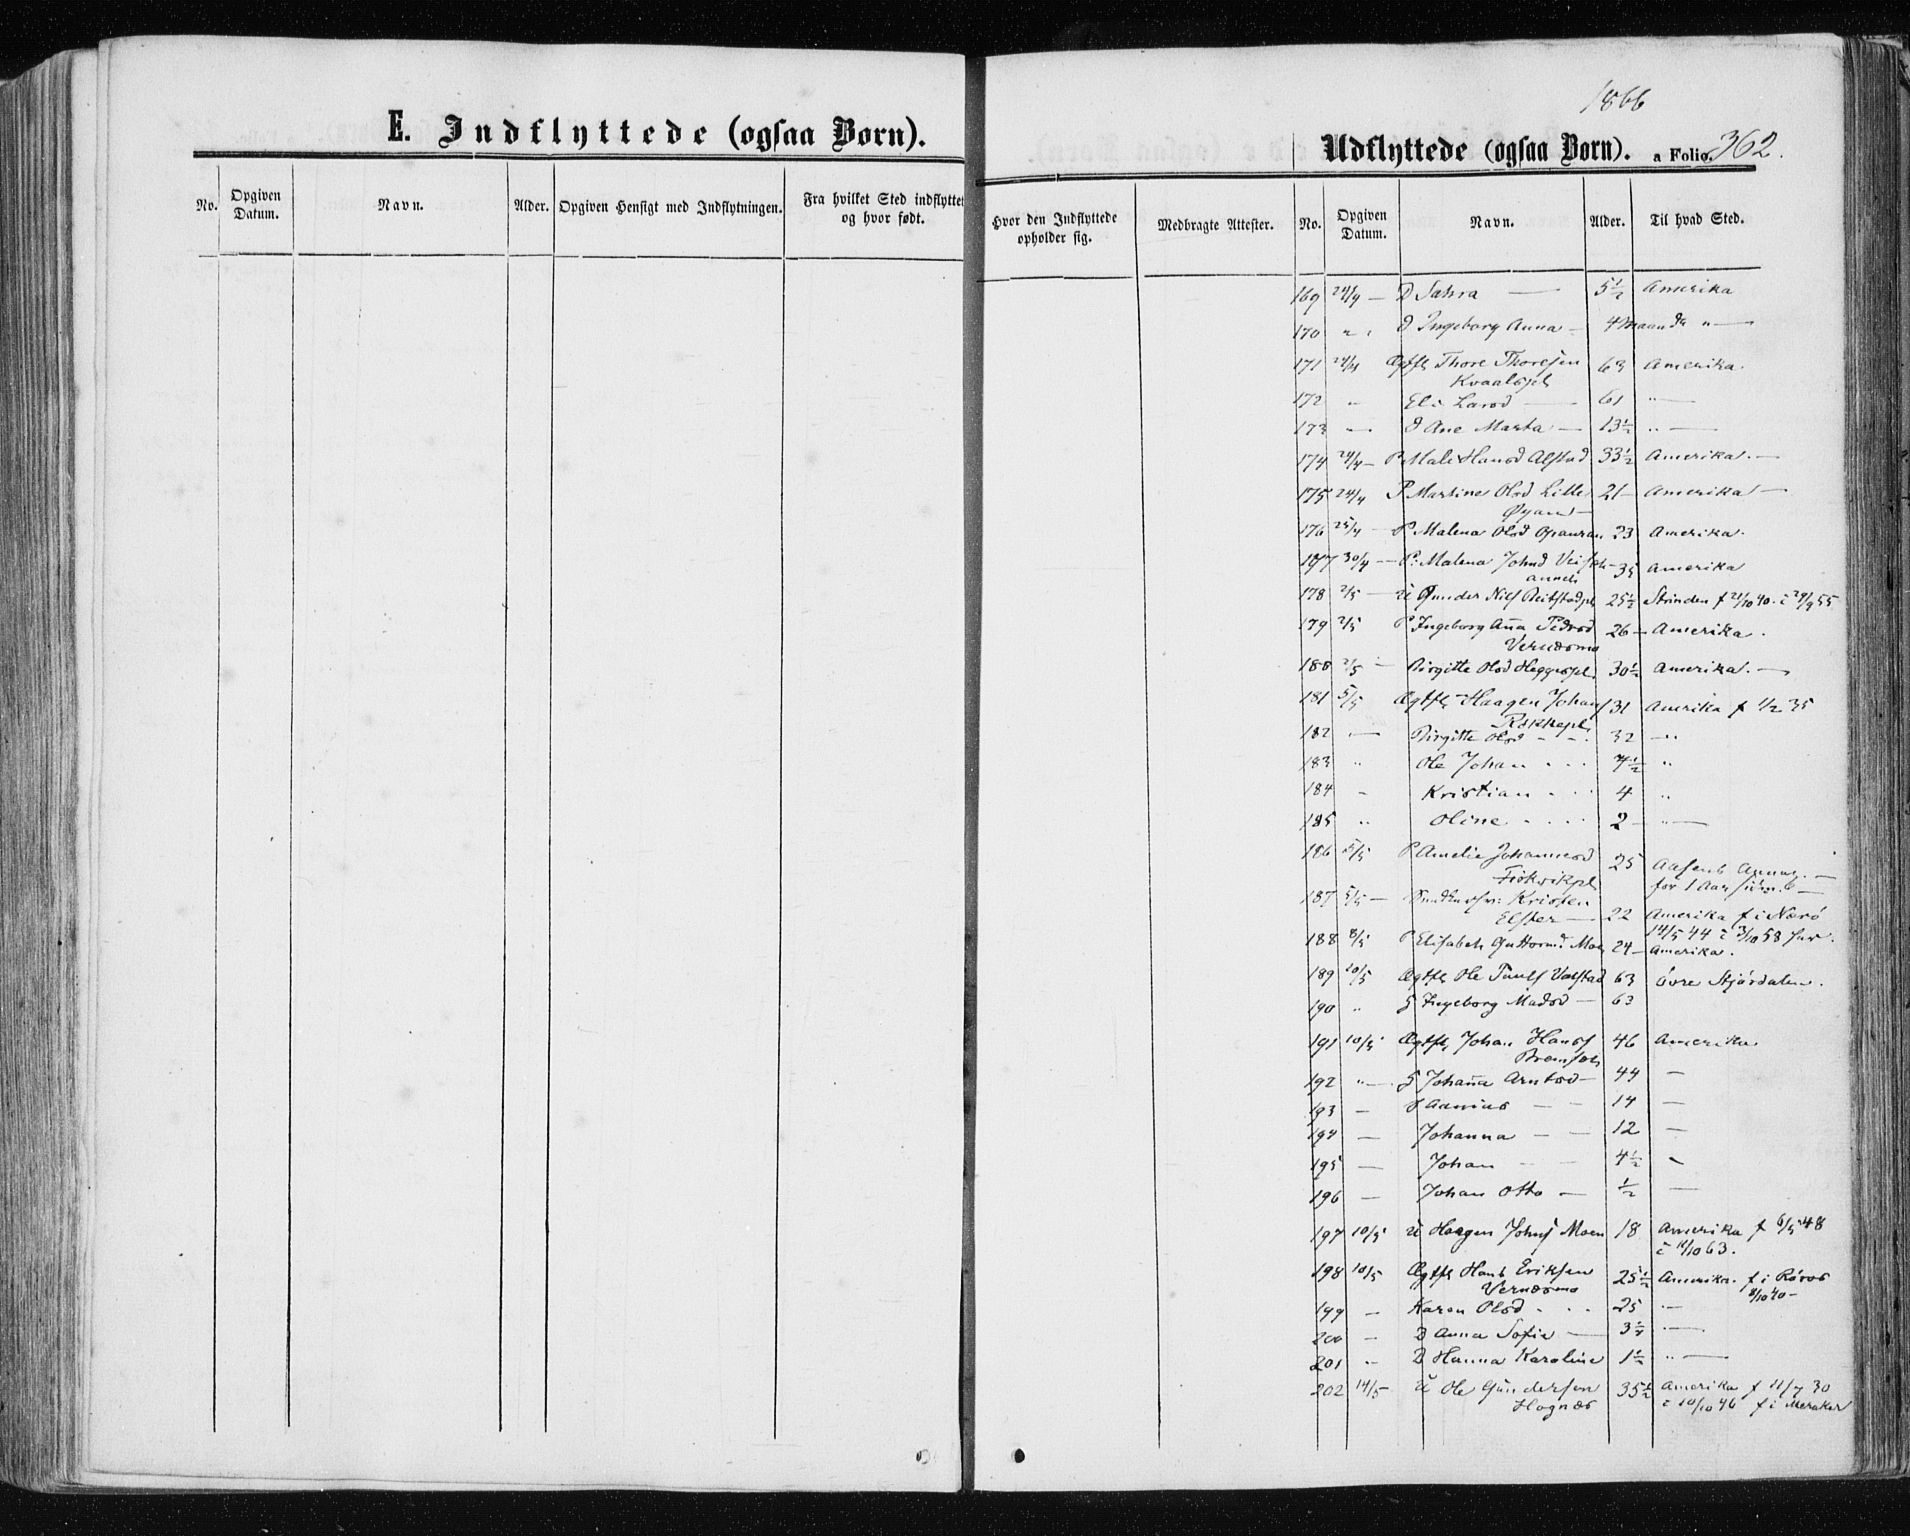 E. Indflyttede (ogsaa Børn).
No.
Opgiven Datum.
Navn.
Alder.
Opgiven Hensigt med Indflytningen.
Fra hvilket Sted indflyttet og hvor født.
1866
Udflyttede (ogsaa Børn). a Folio 362.
Hvor den Indflyttede opholder sig.
Medbragte Attester.
No.
Opgiven Datum.
Navn.
Alder.
Til hvad Sted.
169 24/4 — D Sahra — 5½ Amerika
170 " " D Ingeborg Anna — 4 Maandr " —
171 24/4 Ægtfl Thore Thoresen 63 Amerika.
Kvaalspl
172 " Eli Larsd — 61 " —
173 " — D Ane Marta — 13½ " —
174 24/4 — P Mali Hansd Alstad 33½ Amerika. —
175 24/4 P Martine Olsd Lille 21 — Amerika —
Øyan —
176 25/4 - P Malena Olsd 23 Amerika.
177 30/4 — P. Malena Johnd 35 Amerika
178 2/5 — U Gunder Nils 25½ Strinden f 21/10 40. c 29/9 55
179 2/5 P Ingeborg Aña Pedersd 26 — Amerika.
Vernesmo
180 2/5 — Birgitte Olsd Heggespl. 30½ Amerika. —
181 5/5 Ægtfl Haagen Johans 31 Amerika f 1/2 35
Rokkepl
182 — Birgitte Olsd - - . 32 — "
183 " Ole Johan . . . 7½ "
184 - Kristian . . . 4 "
185 " Oline . . . . 2 — " —
186 5/5 P Amelie Johannesd 25 Aasens
Fiskvikpl for 1 Aar
187 5/5 — Kristen
Elster — 22 Amerika f i Nærö
14/5 44 c 3/10 58
188 8/5 P Elisabeth Guttormd Moen 24 — Amerika.
189 10/5 Ægtfl Ole Pauls Valstad 63 övre Stjördalen.
190 " G Ingeborg Madsd — 63
191 10/5 Ægtfl Johan Hans 46 Amerika
192 " — G Johaña Arntsd — 44 —
193 — — — 14 —
194 — Johanna — — 12 —
195 — Johan — — 4½ -
196 — Johan Otto — ½ —
197 10/5 U Haagen Johns Moen 18 Amerika f 6/5 48
c 63.
198 10/5 Ægtfl Hans Eriksen 25½ Amerika. f i Röros
Vernesmo 8/10 40 —
199 — Karen Olsd - . . 25 " —
200 — D Anna Sofie — 3½ " —
201 " D Hanna Karoline 1½ " —
202 14/5 U Ole Gundersen 35½ Amerika f 11/7 30
Hognes c 10/10 46 f i Meraker